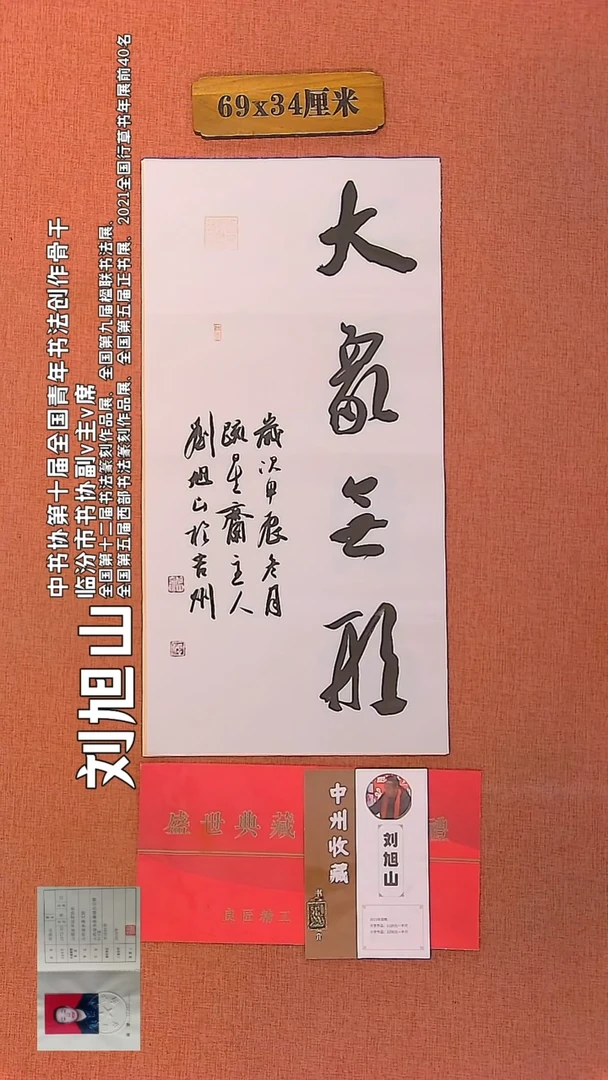 69x34厘米
大象无形
歲次甲辰冬月
主人
劉旭山於吉州
中书协第十届全国青年书法创作骨干
临汾市书协副v主v席
全国第十二届书法篆刻作品展、全国第九届楹联书法展、
全国第五届西部书法篆刻作品展、全国第五届正书展、2021全国行草书年展前40名
刘旭山
盛世典藏
禮
良匠精工
中州收藏
刘旭山